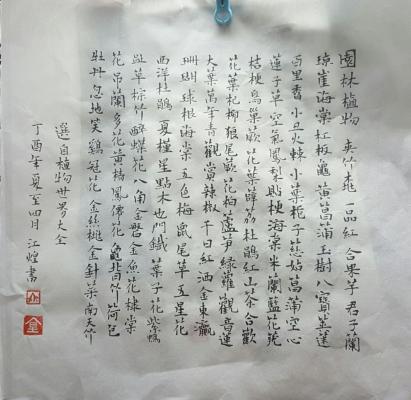 園林植物 夾竹桃 一品紅 合果芋 君子蘭
琼崖海棠 紅板龜 黄菖蒲 玉樹 八寶 莲
百里香 小丑火棘 小葉栀子 慈姑 菖蒲 空心
蓮子草 空氣鳳梨 貼梗海棠 米蘭 藍花
桔梗 鳥巢蕨 花葉薜荔 杜鵑紅山茶 合歡
花葉杞柳 狼尾蕨 花柏 蘆笋 绿蘿 觀音蓮
大葉萬年青 觀賞辣椒 千日紅 洒金東瀛
珊瑚 球根海棠 五色梅 鼠尾草 五星花
西洋杜鵑 夏槿 星點木 也門鐵 葉子花 紫鴨
跖草 棕竹 醉蝶花 八角金盤 金魚花 棣棠
花 吊蘭 多花黄精 鳳佛花 龜北竹 荷包
牡丹 忽地笑 鷄冠花 金絲桃 金針菜 南天竹
選自植物世界大全
丁酉年夏至四月 江煌書